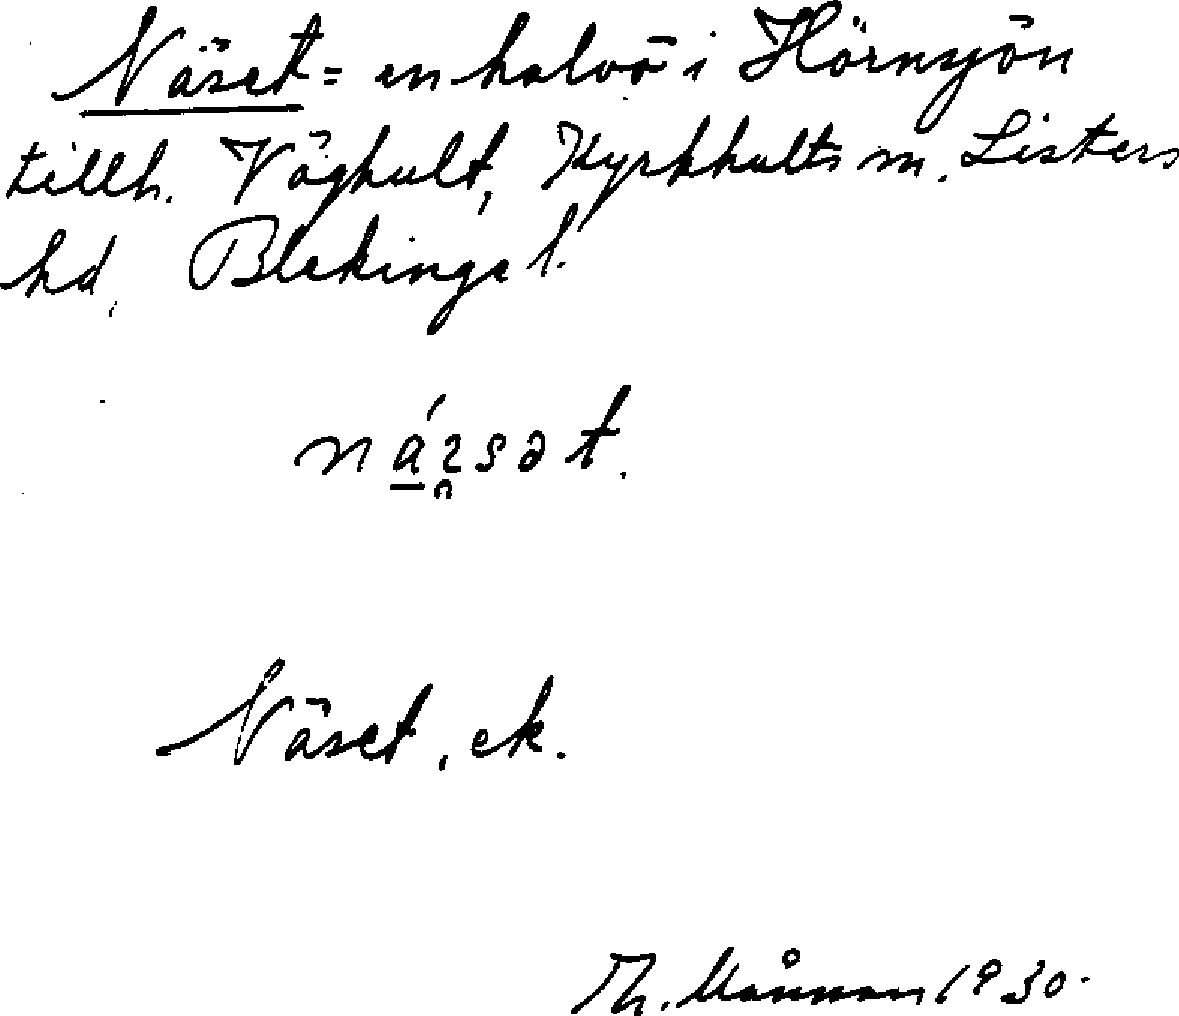 Näset = en halvö i Hörnsjön
tillh. Väghult, Kyrkhults m. Listers
hd, Blekinge l.
Näset, ek.
Th. 1930.